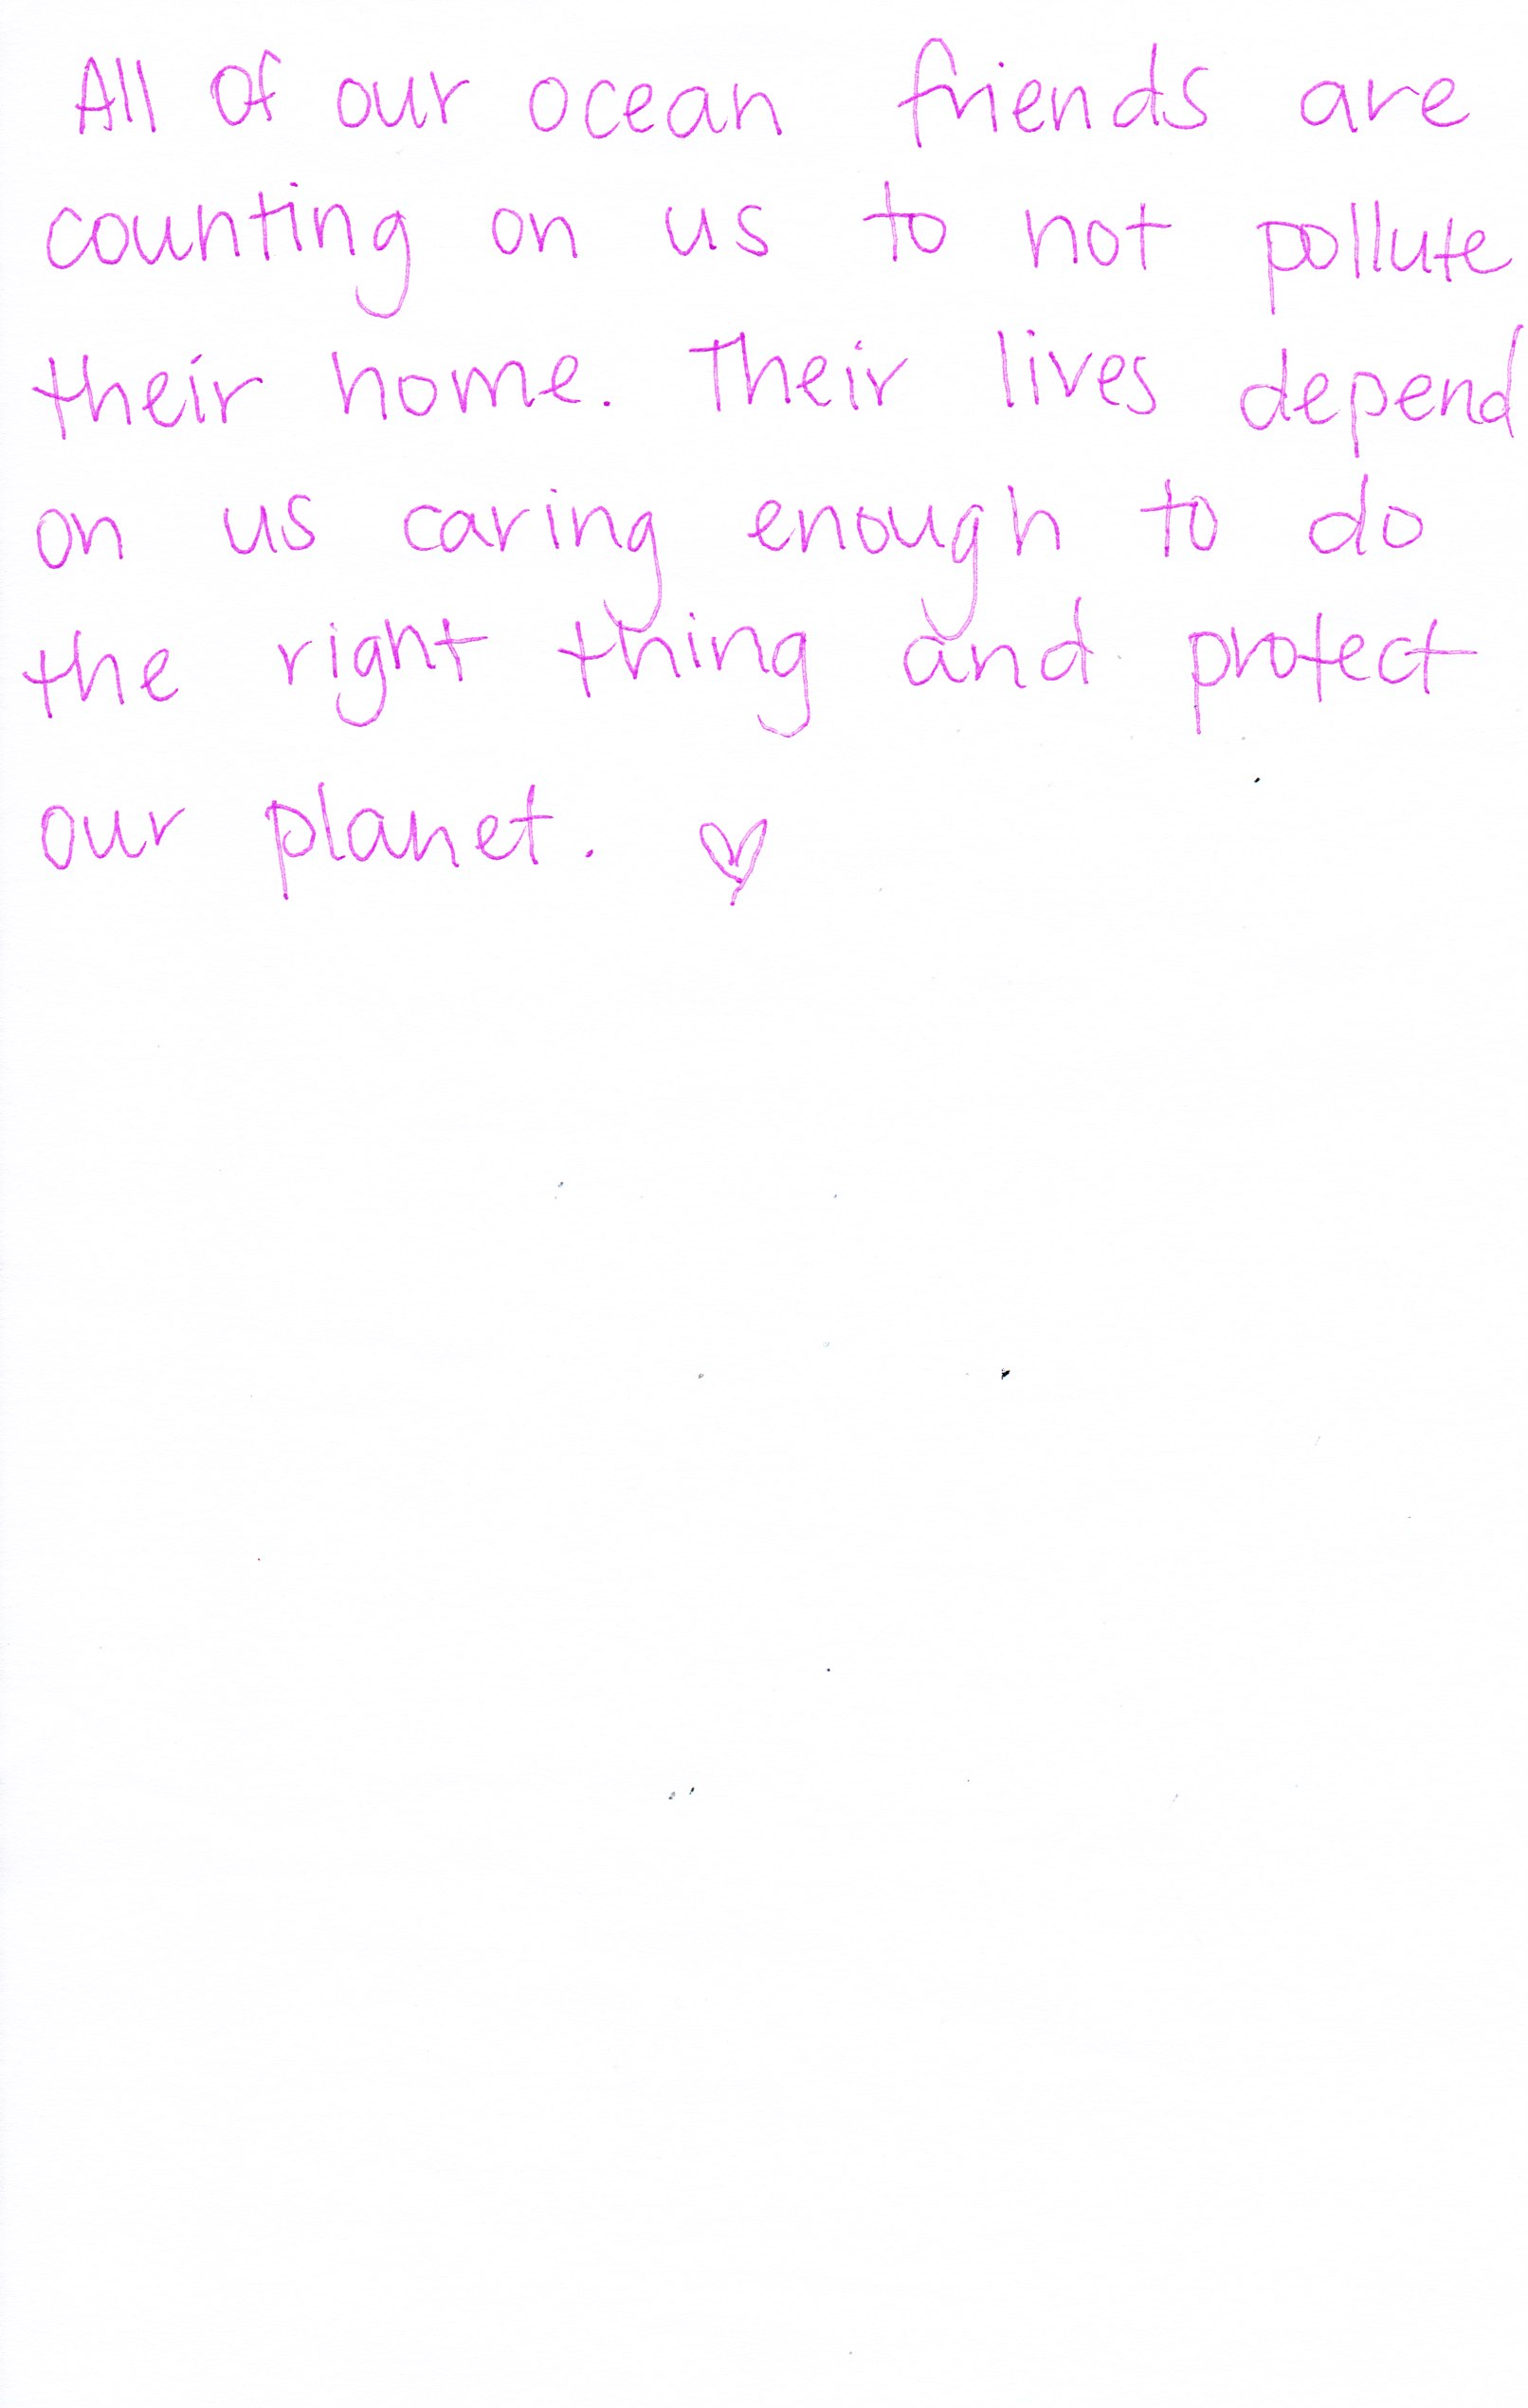 All of our ocean friends are
counting on us to not pollute
their home. Their lives depend
on us caring enough to do
the right thing and protect
our planet. ♡